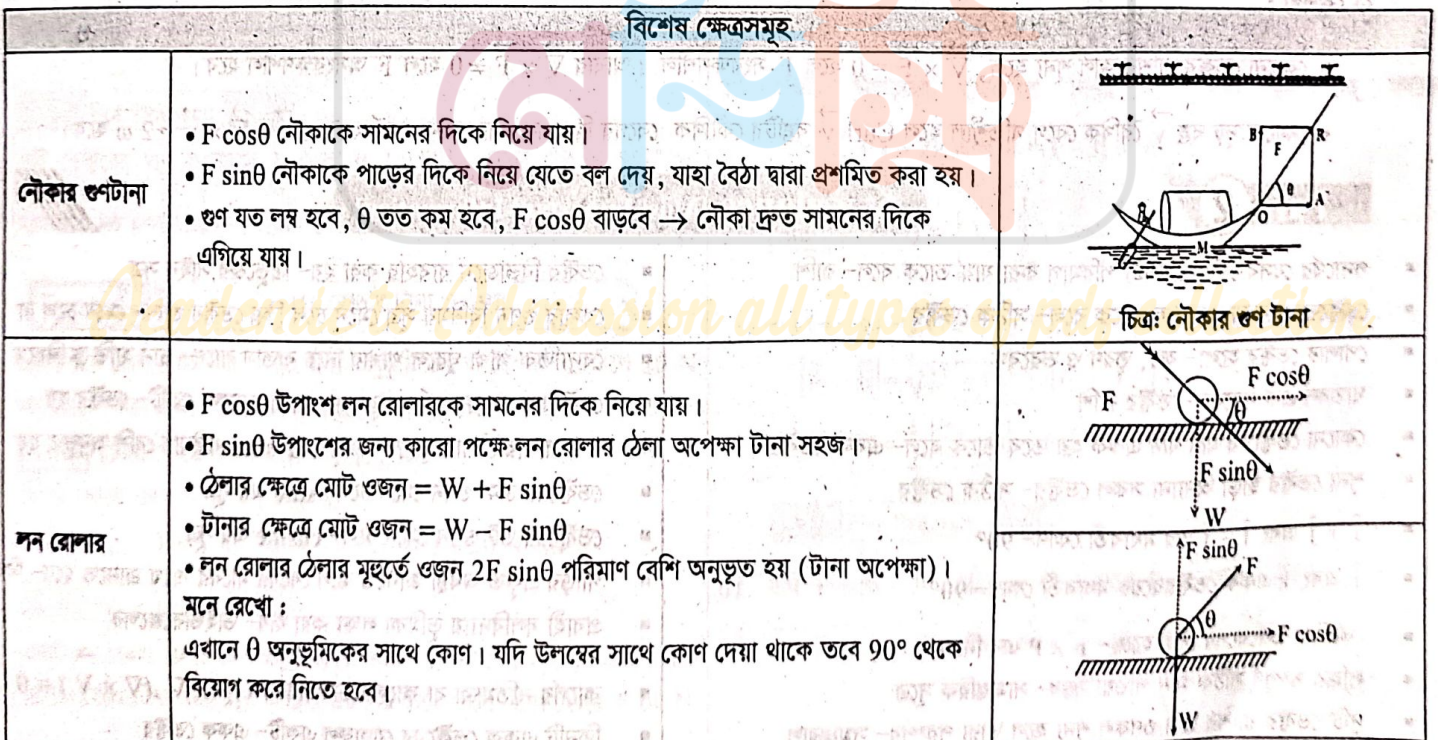 বিশেষ ক্ষেত্রসমূহ
নৌকার গুণটানা
• F cosθ নৌকাকে সামনের দিকে নিয়ে যায়।
• F sinθ নৌকাকে পাড়ের দিকে নিয়ে যেতে বল দেয়, যাহা বৈঠা দ্বারা প্রশমিত করা হয়।
• গুণ যত লম্ব হবে, θ তত কম হবে, F cosθ বাড়বে → নৌকা দ্রুত সামনের দিকে
এগিয়ে যায়।
B
R
F
θ
A
O
M
চিত্র: নৌকার গুণ টানা
লন রোলার
• F cosθ উপাংশ লন রোলারকে সামনের দিকে নিয়ে যায়।
• F sinθ উপাংশের জন্য কারো পক্ষে লন রোলার ঠেলা অপেক্ষা টানা সহজ।
• ঠেলার ক্ষেত্রে মোট ওজন = W + F sinθ
• টানার ক্ষেত্রে মোট ওজন = W – F sinθ
• লন রোলার ঠেলার মূহুর্তে ওজন 2F sinθ পরিমাণ বেশি অনুভূত হয় (টানা অপেক্ষা)।
মনে রেখো :
এখানে θ অনুভূমিকের সাথে কোণ। যদি উলম্বের সাথে কোণ দেয়া থাকে তবে 90° থেকে
বিয়োগ করে নিতে হবে।
F
F cosθ
θ
F sinθ
W
F sinθ
F
θ
F cosθ
W
মেডিস্ট্রি
Academic to Admission all types of pdf collection